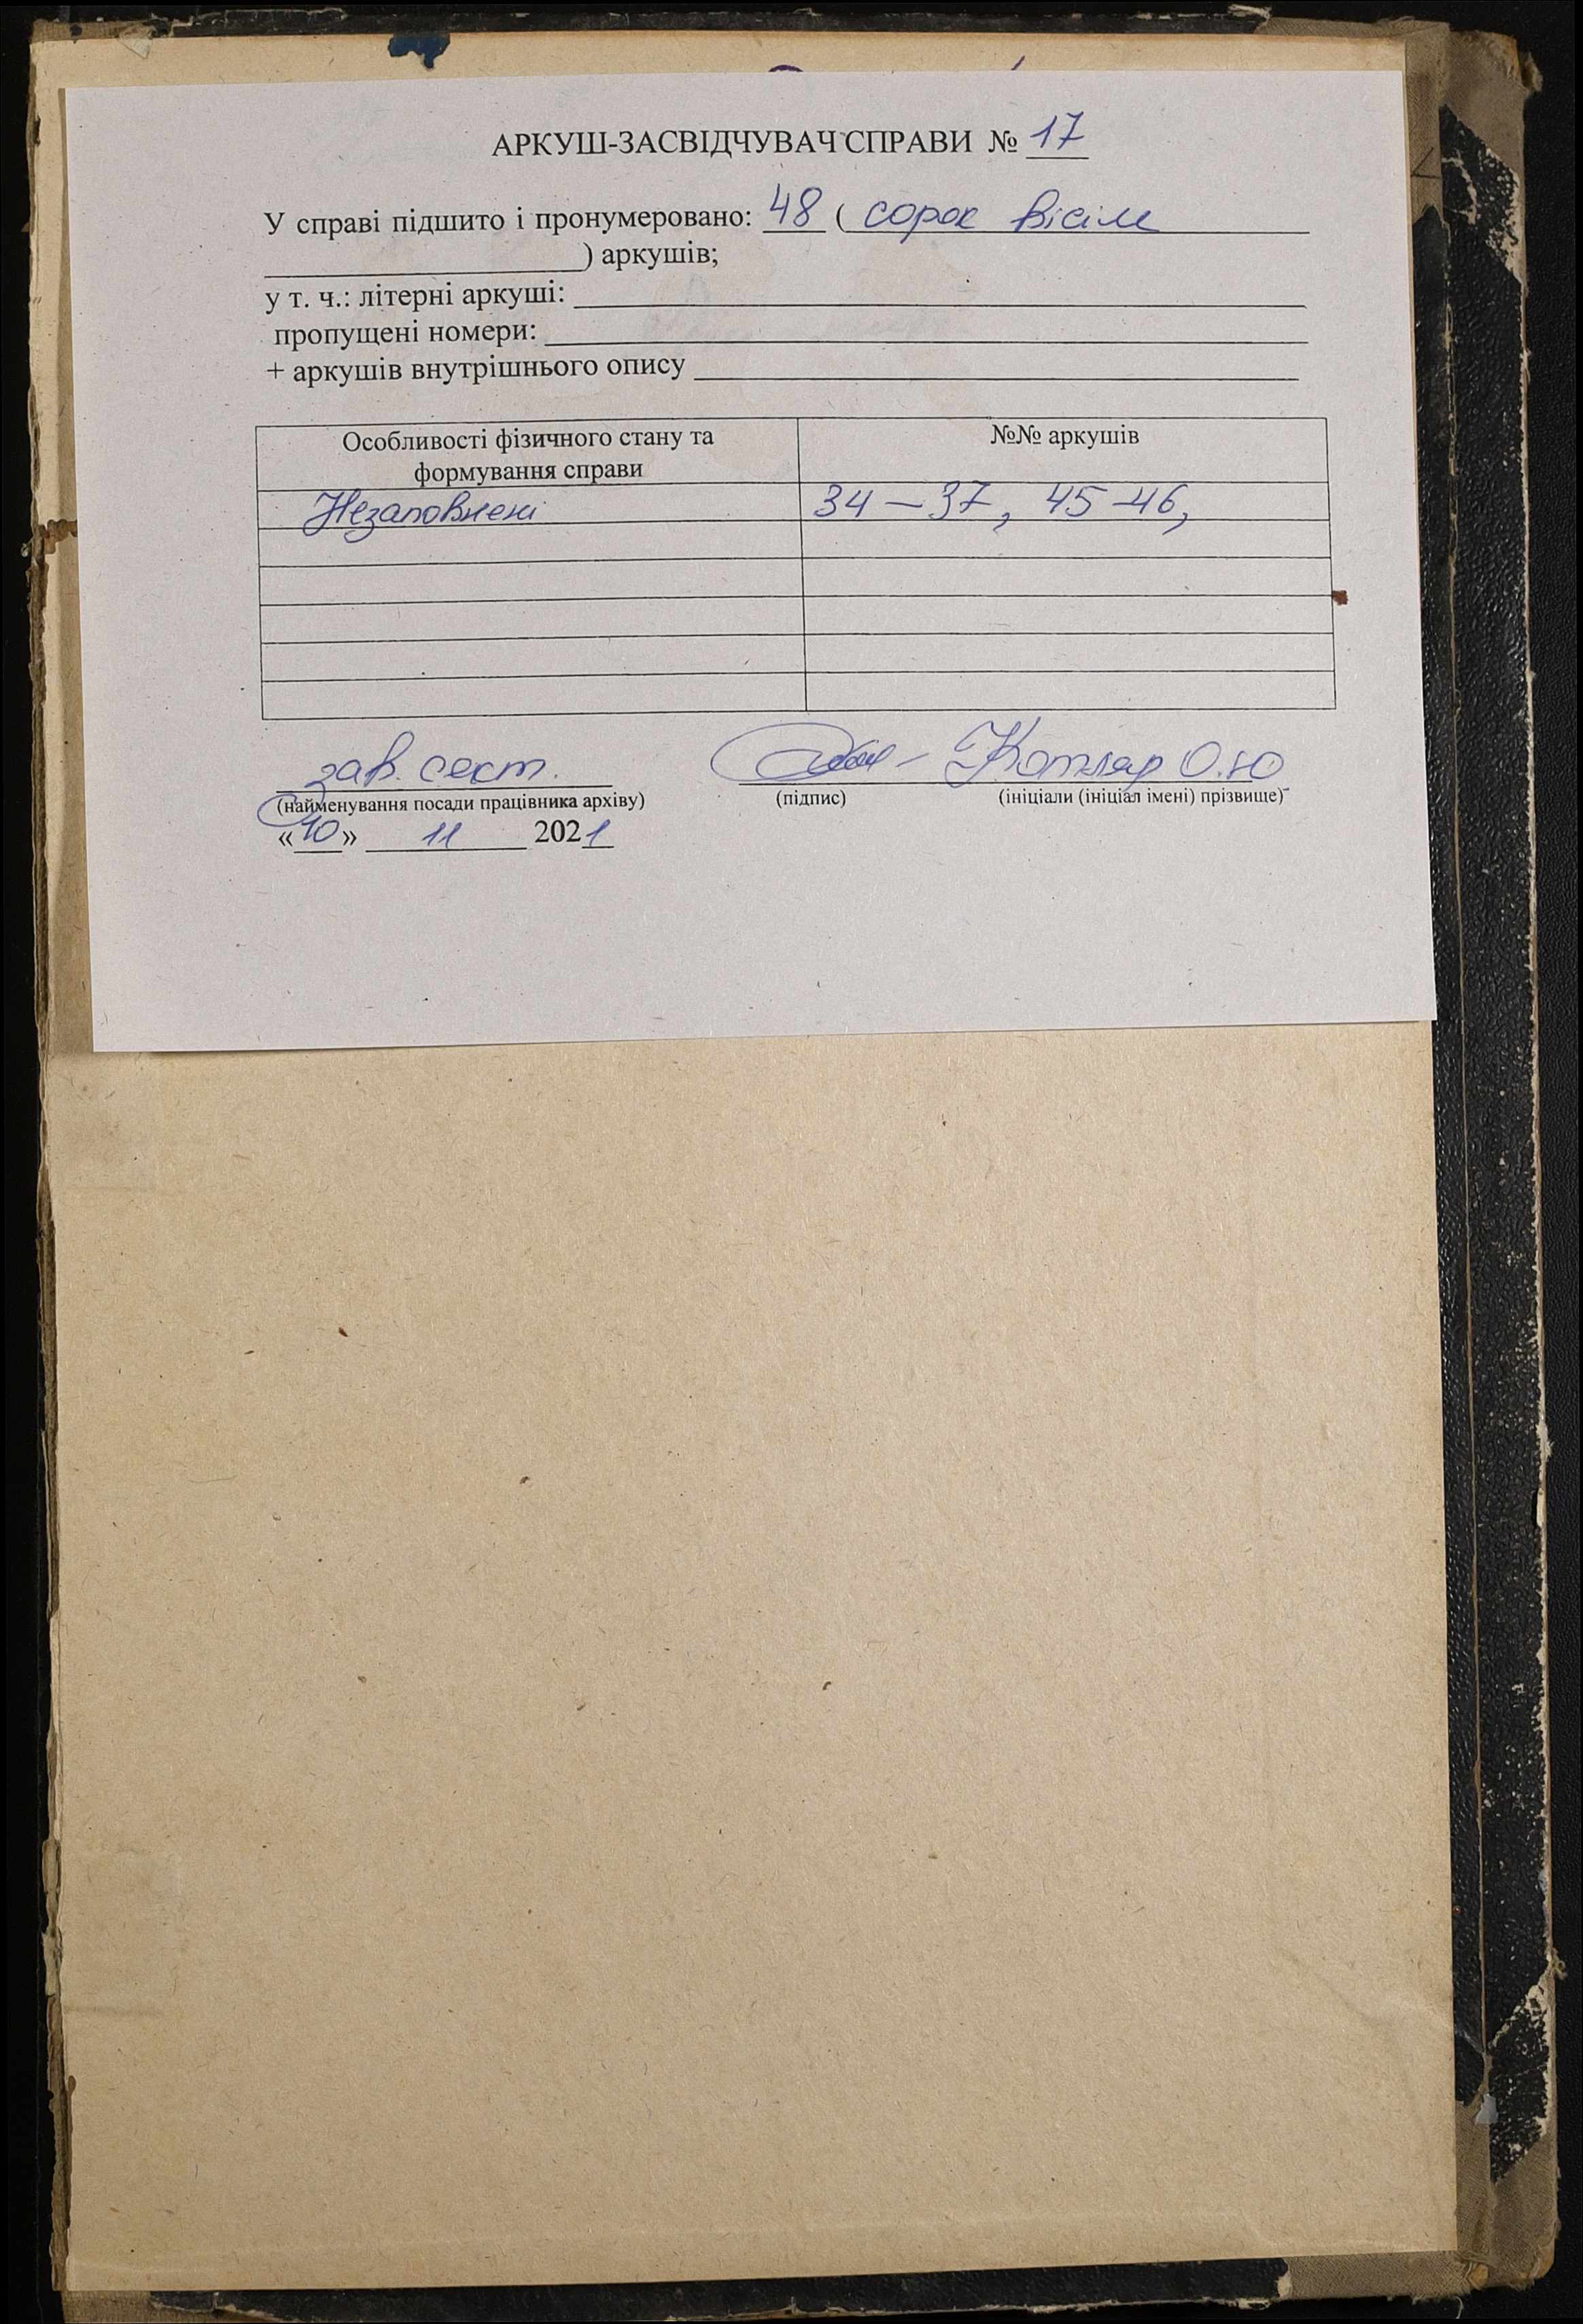 АРКУШ-ЗАСВІДЧУВАЧ СПРАВИ № 17
У справі підшито і пронумеровано: 48 ( сорок вісім
) аркушів;
у т. ч.: літерні аркуші:
пропущені номери:
+ аркушів внутрішнього опису
Особливості фізичного стану та формування справи №№ аркушів
Незаповнені 34 – 37, 45-46,
зав. сект. Котляр О.Ю
(найменування посади працівника архіву) (підпис) (ініціали (ініціал імені) прізвище)
«10» 11 2021